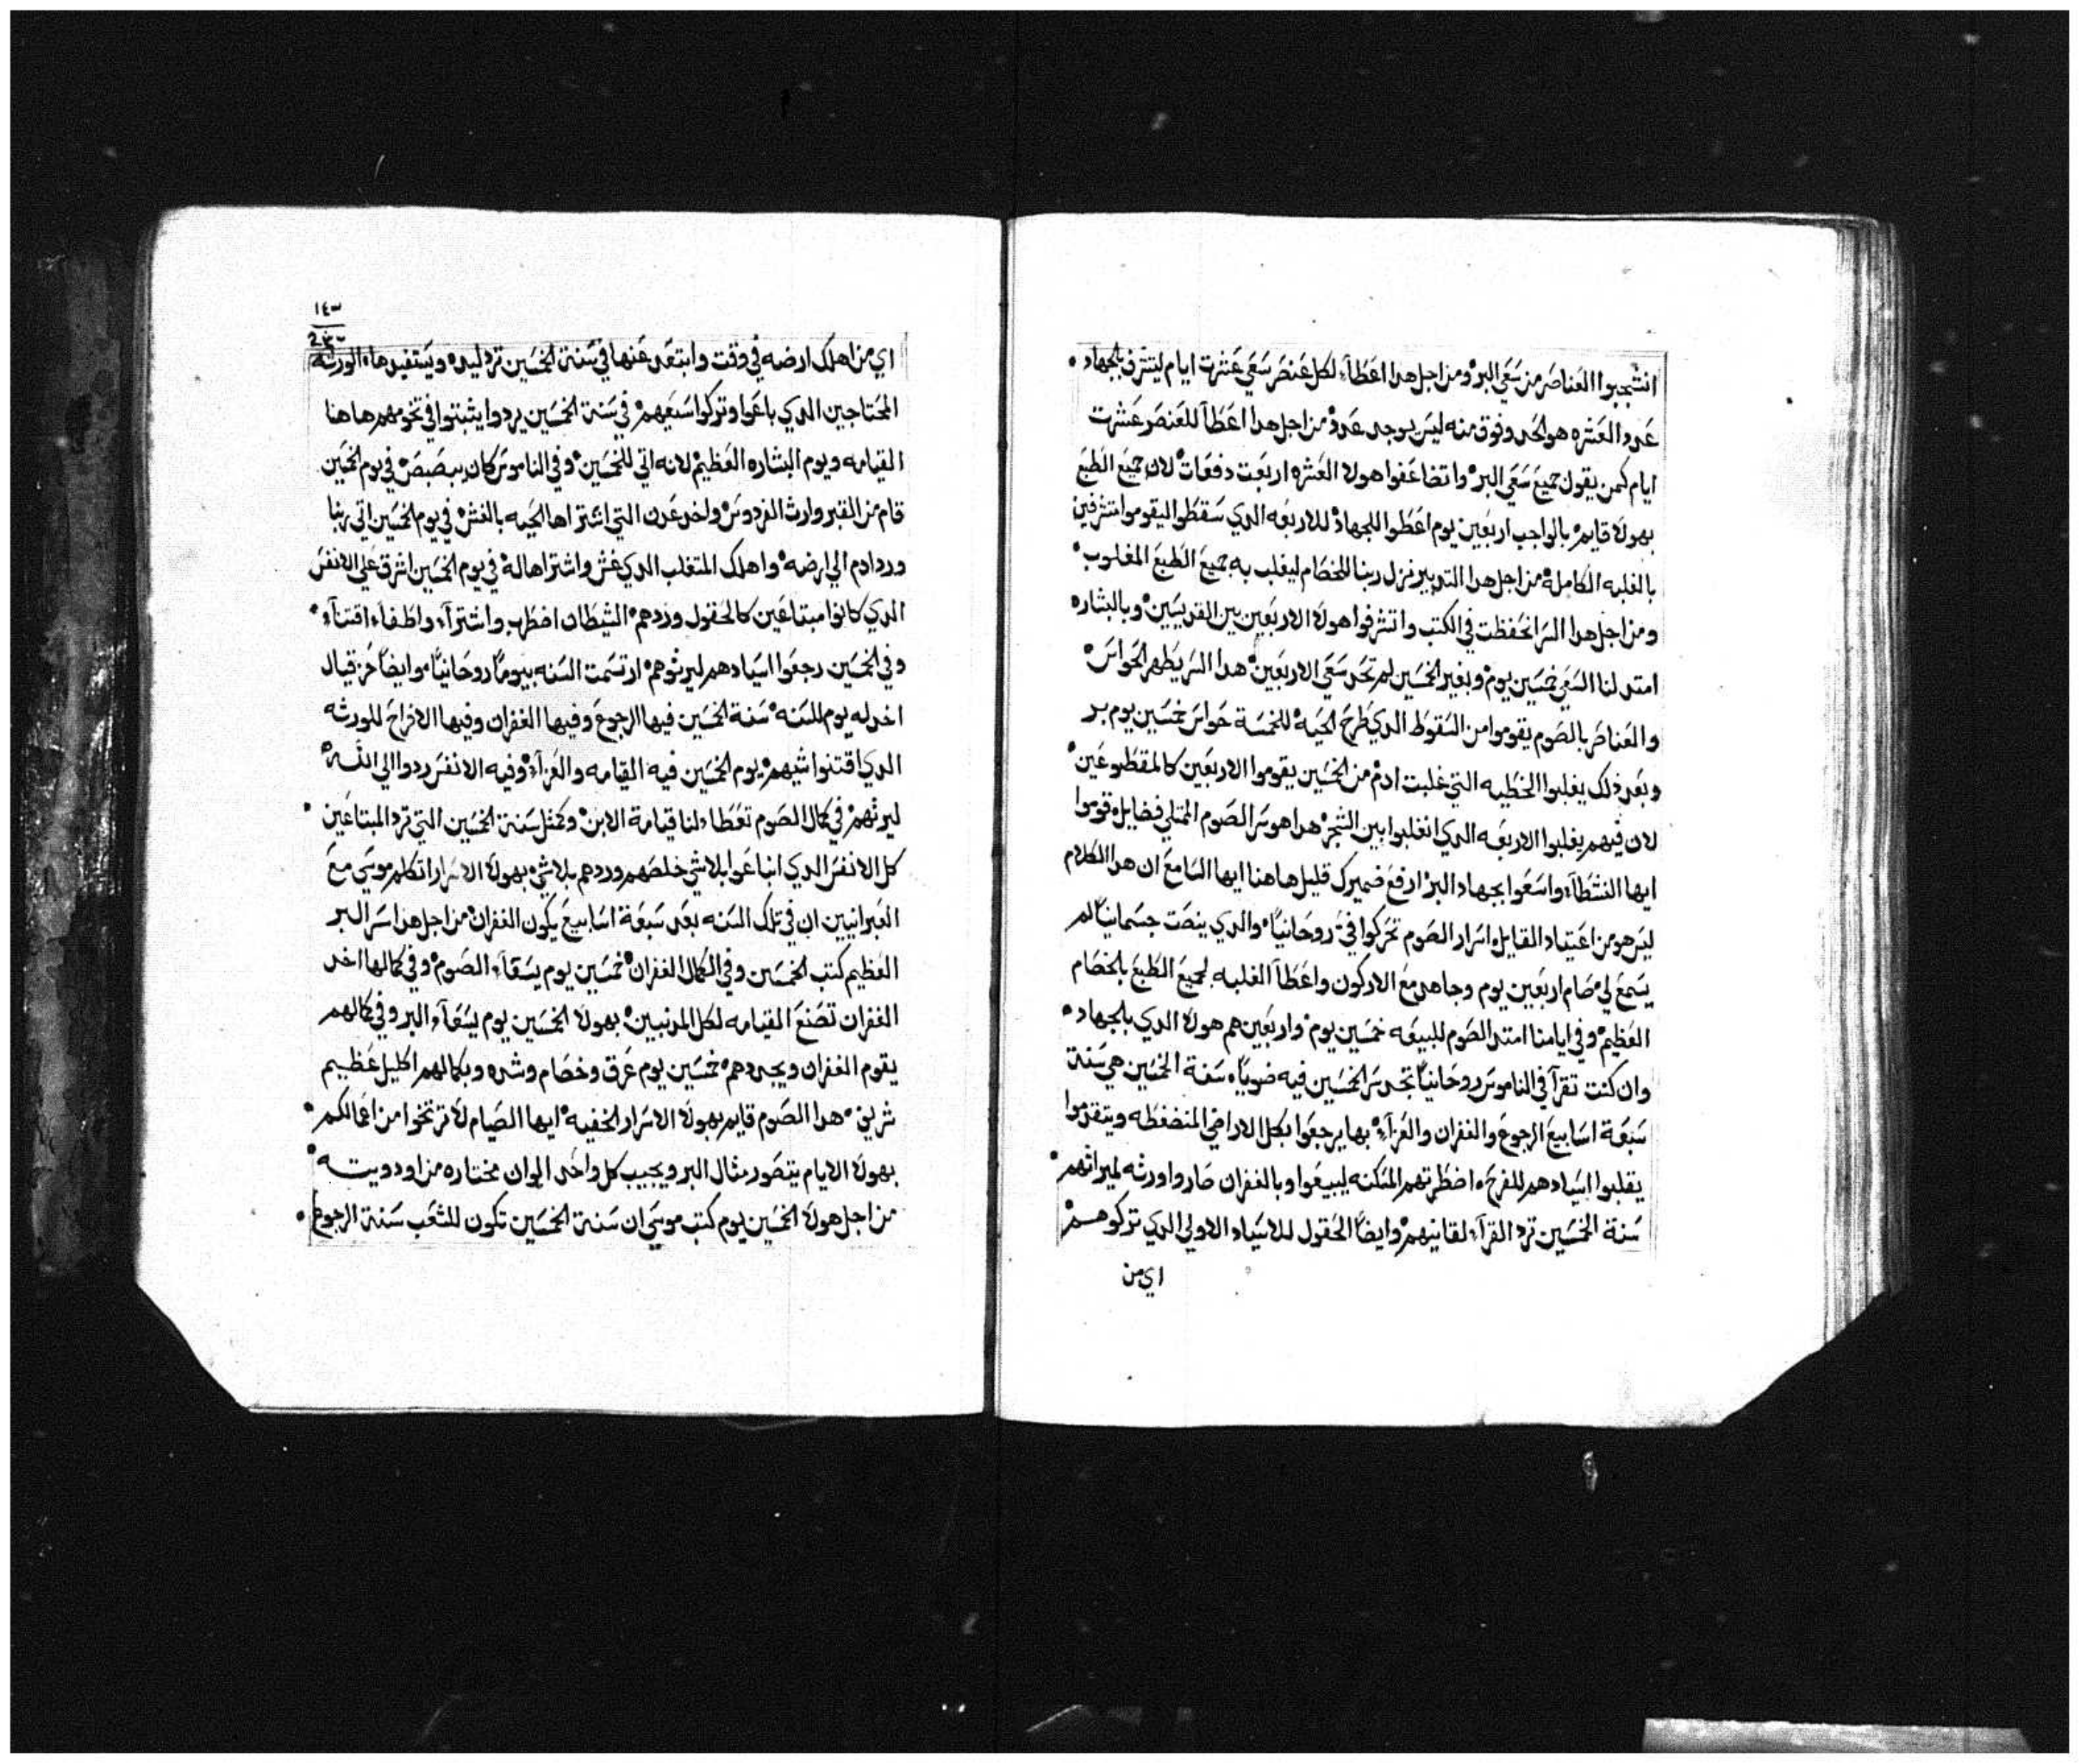 انشجبوا العناصر من سعي البر ومن اجل هدا اعطاء لكل عنصر سعي عشرت ايام ليتشرف بالجهاد
عدد العشره هو الحد وفوق منه ليس يوجد عدد من اجل هدا اعطا للعنصر عشرت
ايام كمن يقول جميع سعي البر واتضاعفوا هولا العشره اربعت دفعات لان جميع الطبع
بهولا قايم بالواجب اربعين يوم اعطوا للجهاد للاربعه الدي سقطوا ليقوموا متشرفين
بالغلبه الكامله من اجل هدا التدبير نزل ربنا للخصام ليغلب به جميع الطبع المغلوب
ومن اجل هدا السر انحفظت في الكتب واتشرفوا هولا الاربعين بين القديسين وبالبشاره
امتد لنا السعي خمسين يوم وبغير الخمسين لم تحد سعي الاربعين هدا السر يطهر الحواس
والعناصر بالصوم يقوموا من السقوط الدي طرح الحيه للخمسة حواس خمسين يوم بر
وبعد ذلك يغلبوا الخطيه التي غلبت ادم من الخمسين يقوموا الاربعين كالمقطوعين
لان فيهم يغلبوا الاربعه الدي انغلبوا بين الشجر هدا هو سر الصوم الممتلي فضايل قوموا
ايها النشطاء واسعوا بجهاد البر ارفع ضميرك قليل هاهنا ايها السامع ان هدا الكلام
ليس هو من اعتياد القايل اسرار الصوم تحركوا في روحانيا والدي ينصت جسمانيا لم
يسمع لي صام اربعين يوم وجاهد مع الاركون واعطا الغلبه لجميع الطبع بالخصام
العظيم وفي ايامنا امتد الصوم للبيعه خمسين يوم واربعين هم هولا الدي بالجهاد
وان كنت تقرا في الناموس روحانيا تجد سر الخمسين فيه ضويا سنة الخمسين هي سنة
سبعة اسابيع الرجوع والغفران والعزاء بها يرجعوا بكل الاراضي المنضغطه ويتقدموا
يقلبوا اسيادهم للفرح اضطرتهم المسكنه ليبيعوا وبالغفران صاروا ورثه لميراثهم
سنة الخمسين ترد القراء لقانيهم وايضا الحقول للاسياد الاولي الدي تركوهم
اي من
١٤٣
اي من اهلك ارضه في وقت وابتعد عنها في سنة الخمسين ترد ليده ويستفيدها الورثه
المحتاجين الدي باعوا وتركوا سبعهم في سنة الخمسين يردوا يثبتوا في تخومهم هاهنا
القيامه ويوم البشاره العظيم لانه اتي للخمسين وفي الناموس كان يبصبص في يوم الخمسين
قام من القبر وارث الفردوس واخد عدن التي اشتراها الحيه بالغش في يوم الخمسين اتي ربنا
ورد ادم الي ارضه واهلك المتغلب الدي غش واشتراها له في يوم الخمسين اشرق علي الانفس
الدي كانوا مبتاعين كالحقول وردهم الشيطان اضطرب واشتراء واطغاء اقتناء
وفي الخمسين رجعوا اسيادهم ليرثوهم ارتسمت السنه بيوما روحانيا وايضا حزقيال
اخد له يوم للسنه سنة الخمسين فيها الرجوع وفيها الغفران وفيها الافراح للورثه
الدي اقتنوا شيهم يوم الخمسين فيه القيامه والعزاء وفيه الانفس ردوا الي الله
ليرثهم في كمال الصوم تعطاء لنا قيامة الابن وكمثل سنة الخمسين التي ترد المبتاعين
كل الانفس الدي انباعوا بلاشي خلصهم وردهم بلاشي بهولا الاسرار اتكلم موسي مع
العبرانيين ان في تلك السنه بعد سبعة اسابيع يكون الغفران من اجل هدا سر البر
العظيم كتب الخمسين وفي الكمال الغفران خمسين يوم يسعاء الصوم وفي كمالها اخد
الغفران تصنع القيامه لكل المدنبين بهولا الخمسين يوم يسعاء البر وفي كمالهم
يقوم الغفران ويجددهم خمسين يوم عرق وخصام وشده وبكمالهم اكليل عظيم
شريف هدا الصوم قايم بهولا الاسرار الخفيه ايها الصيام لا ترتخوا من اعمالكم
بهولا الايام يتصور مثال البر ويجيب كل واحد الوان مختاره من اودويته
من اجل هولا الخمسين يوم كتب موسي ان سنة الخمسين تكون للشعب سنة الرجوع